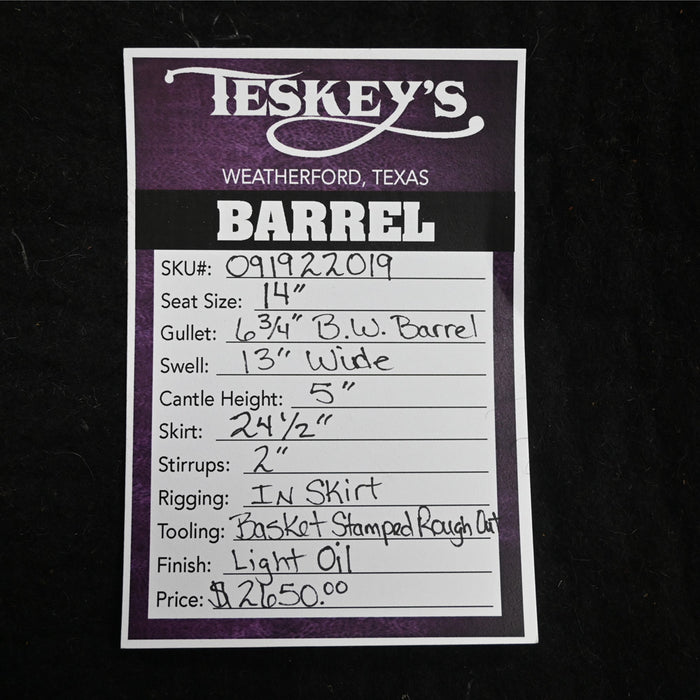 TESKEY'S
WEATHERFORD, TEXAS
BARREL
SKU#: 091922019
Seat Size: 14"
Gullet: 6 3/4" B.W. Barrel
Swell: 13" Wide
Cantle Height: 5"
Skirt: 24 1/2"
Stirrups: 2"
Rigging: IN SKirt
Tooling: Basket Stamped Rough Out
Finish: Light Oil
Price: $2650.00